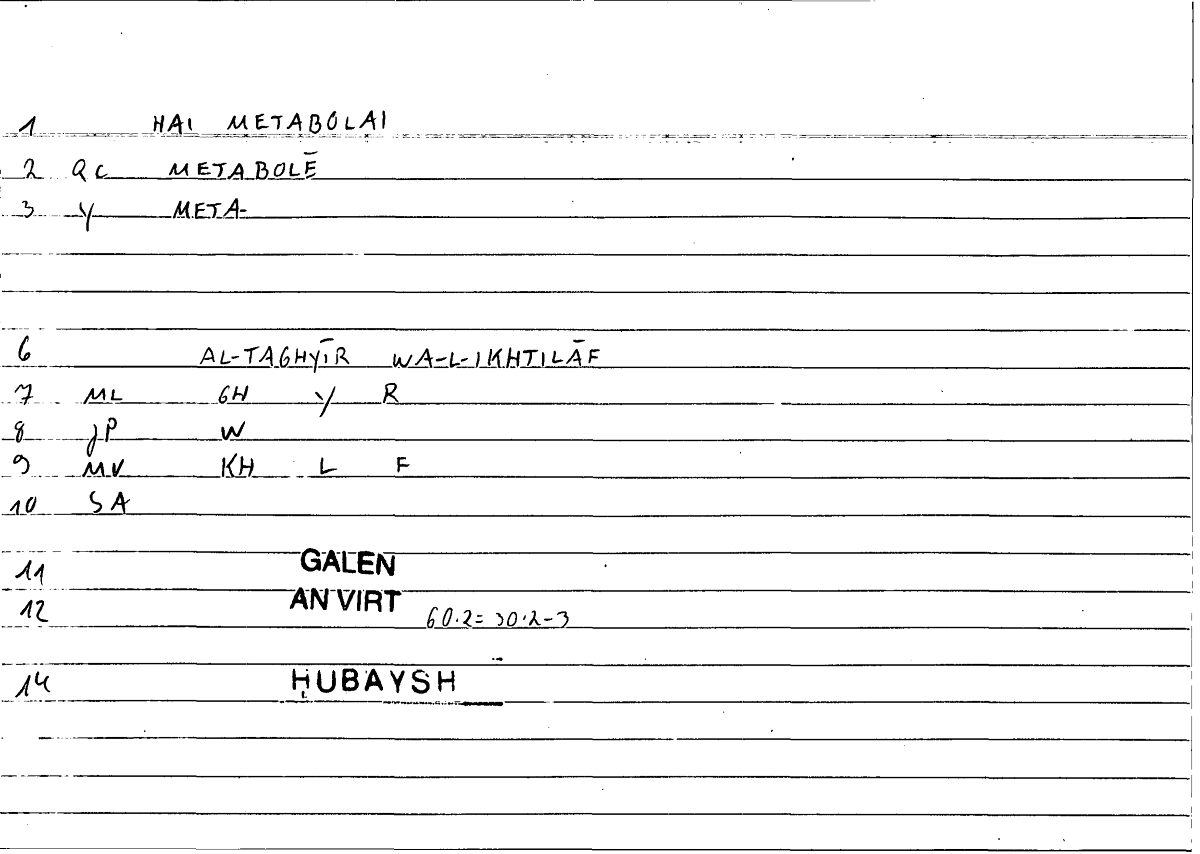 1 HAI METABOLAI
2 QC METABOLĒ
3 Y META-
6 AL-TAGHYĪR WA-L-IKHTILĀF
7 ML GH Y R
8 JP W
9 MV KH L F
10 SA
11 GALEN
12 AN VIRT 60.2=30.2-3
14 ḤUBAYSH